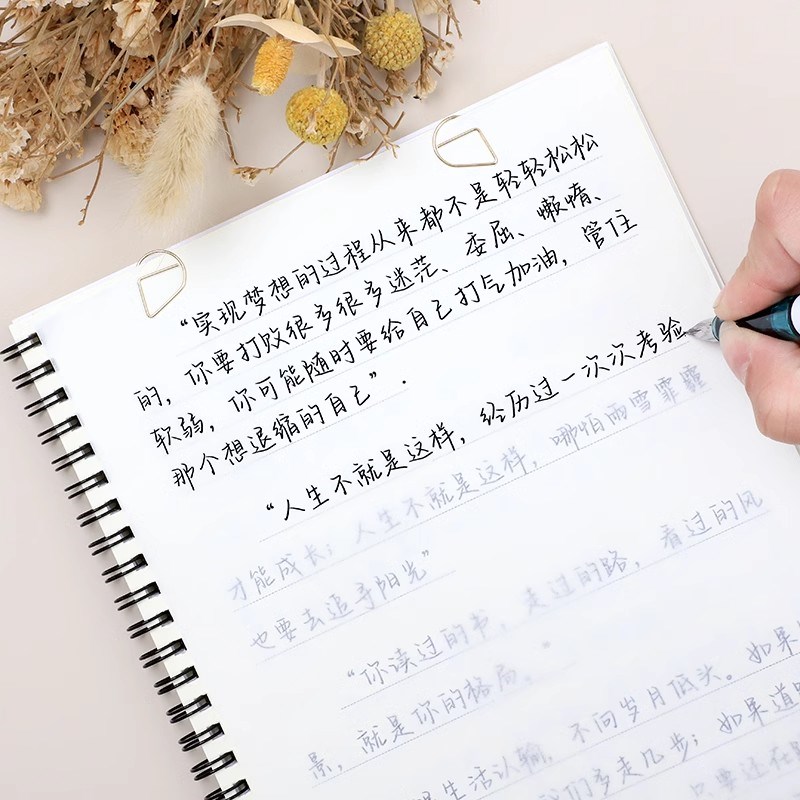 “实现梦想的过程从来都不是轻轻松松
的，你要打败很多很多迷茫、委屈、懒惰、
软弱，你可能随时要给自己打气加油，管住
那个想退缩的自己”.
“人生不就是这样，经历过一次次考验
才能成长；人生不就是这样，哪怕雨雪霏霾
也要去追寻阳光”
“你读过的书，走过的路，看过的风
景，就是你的格局。”
生活认输，不问岁月低头。如果
们多走几步；如果道
只要还在